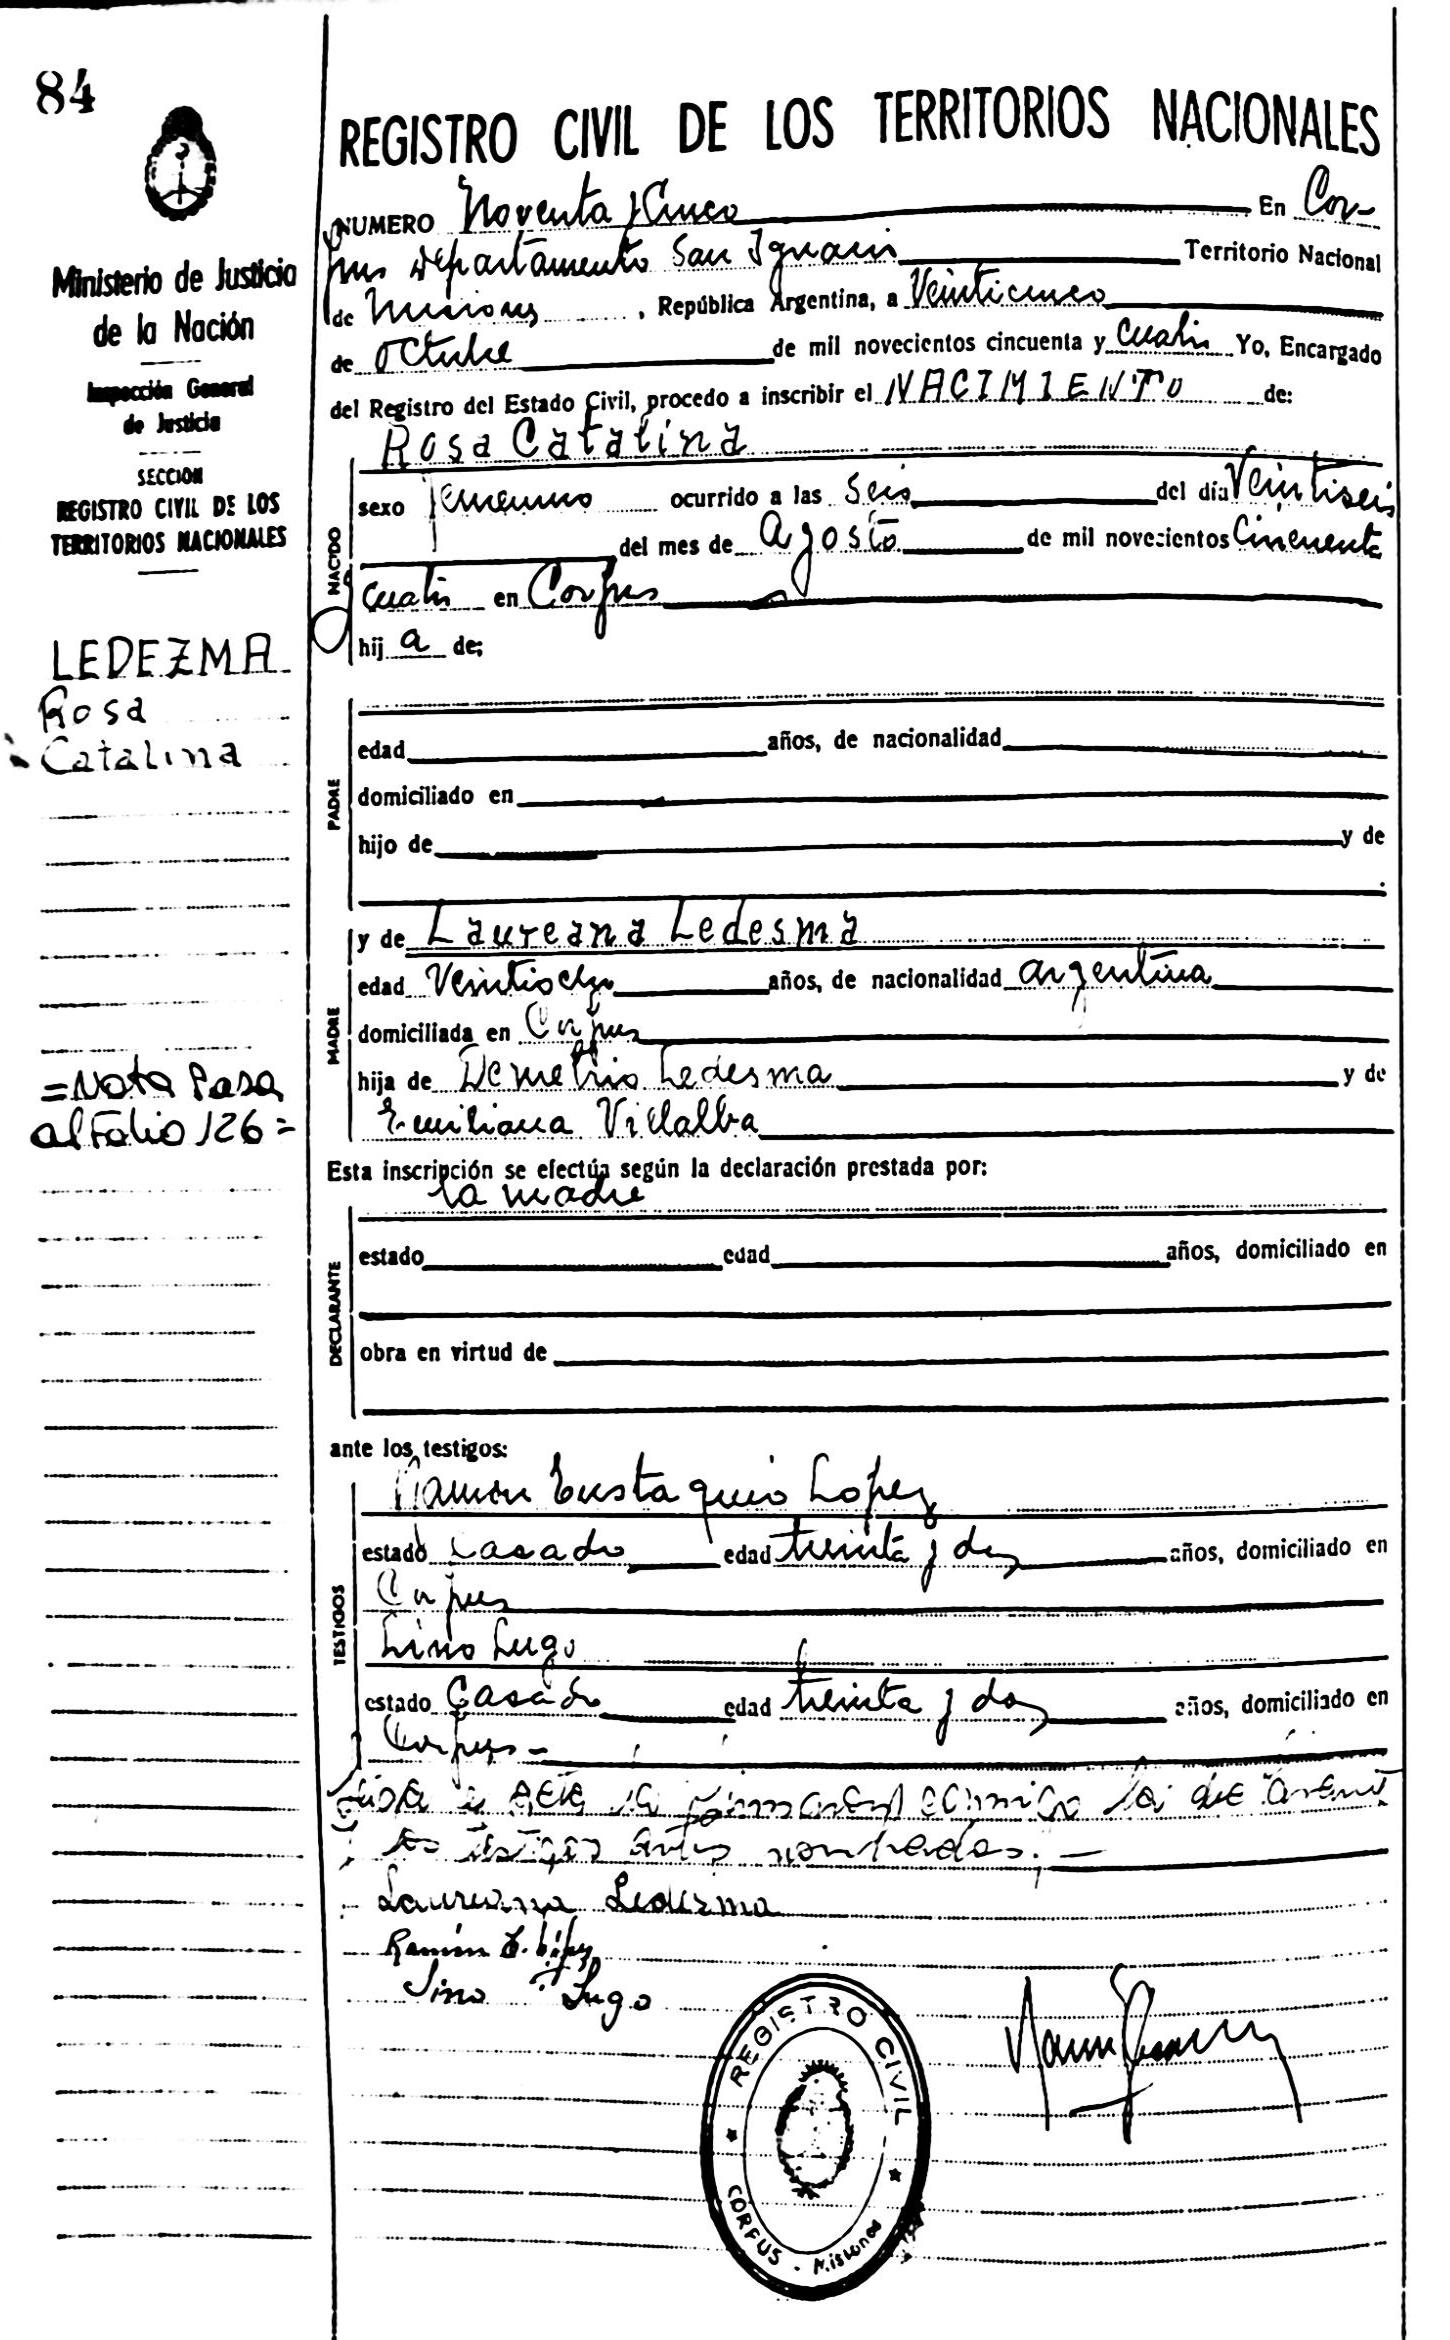 84
Ministerio de Justicia
de la Nación
Inspección General
de Justicia
SECCION
REGISTRO CIVIL DE LOS
TERRITORIOS NACIONALES
LEDEZMA
Rosa
Catalina
=Nota Pasa
al Folio 126=
REGISTRO CIVIL DE LOS TERRITORIOS NACIONALES
NUMERO Noventa y Cinco En Cor-
pus Departamento San Ignacio Territorio Nacional
de Misiones, República Argentina, a Veinticinco
de Octubre de mil novecientos cincuenta y cuatro Yo, Encargado
del Registro del Estado Civil, procedo a inscribir el NACIMIENTO de:
Rosa Catalina
NACIDO
sexo femenino ocurrido a las Seis del día Veintiseis
del mes de Agosto de mil novecientos Cincuenta
y cuatro en Corpus
hij a de;
PADRE
edad años, de nacionalidad
domiciliado en
hijo de y de
MADRE
y de Laureana Ledesma
edad Veintiocho años, de nacionalidad argentina
domiciliada en Corpus
hija de Demetrio Ledesma y de
Emiliana Villalba
Esta inscripción se efectúa según la declaración prestada por:
la madre
DECLARANTE
estado edad años, domiciliado en
obra en virtud de
ante los testigos:
TESTIGOS
Ramon Eustaquio Lopez
estado Casado edad treinta y dos años, domiciliado en
Corpus
Lino Lugo
estado Casado edad treinta y dos años, domiciliado en
Corpus-
el acta la conmigo la
los testigos antes nombrados.—
Laureana Ledezma
Ramón E. López
Lino Lugo
REGISTRO CIVIL
CORPUS - Misiones